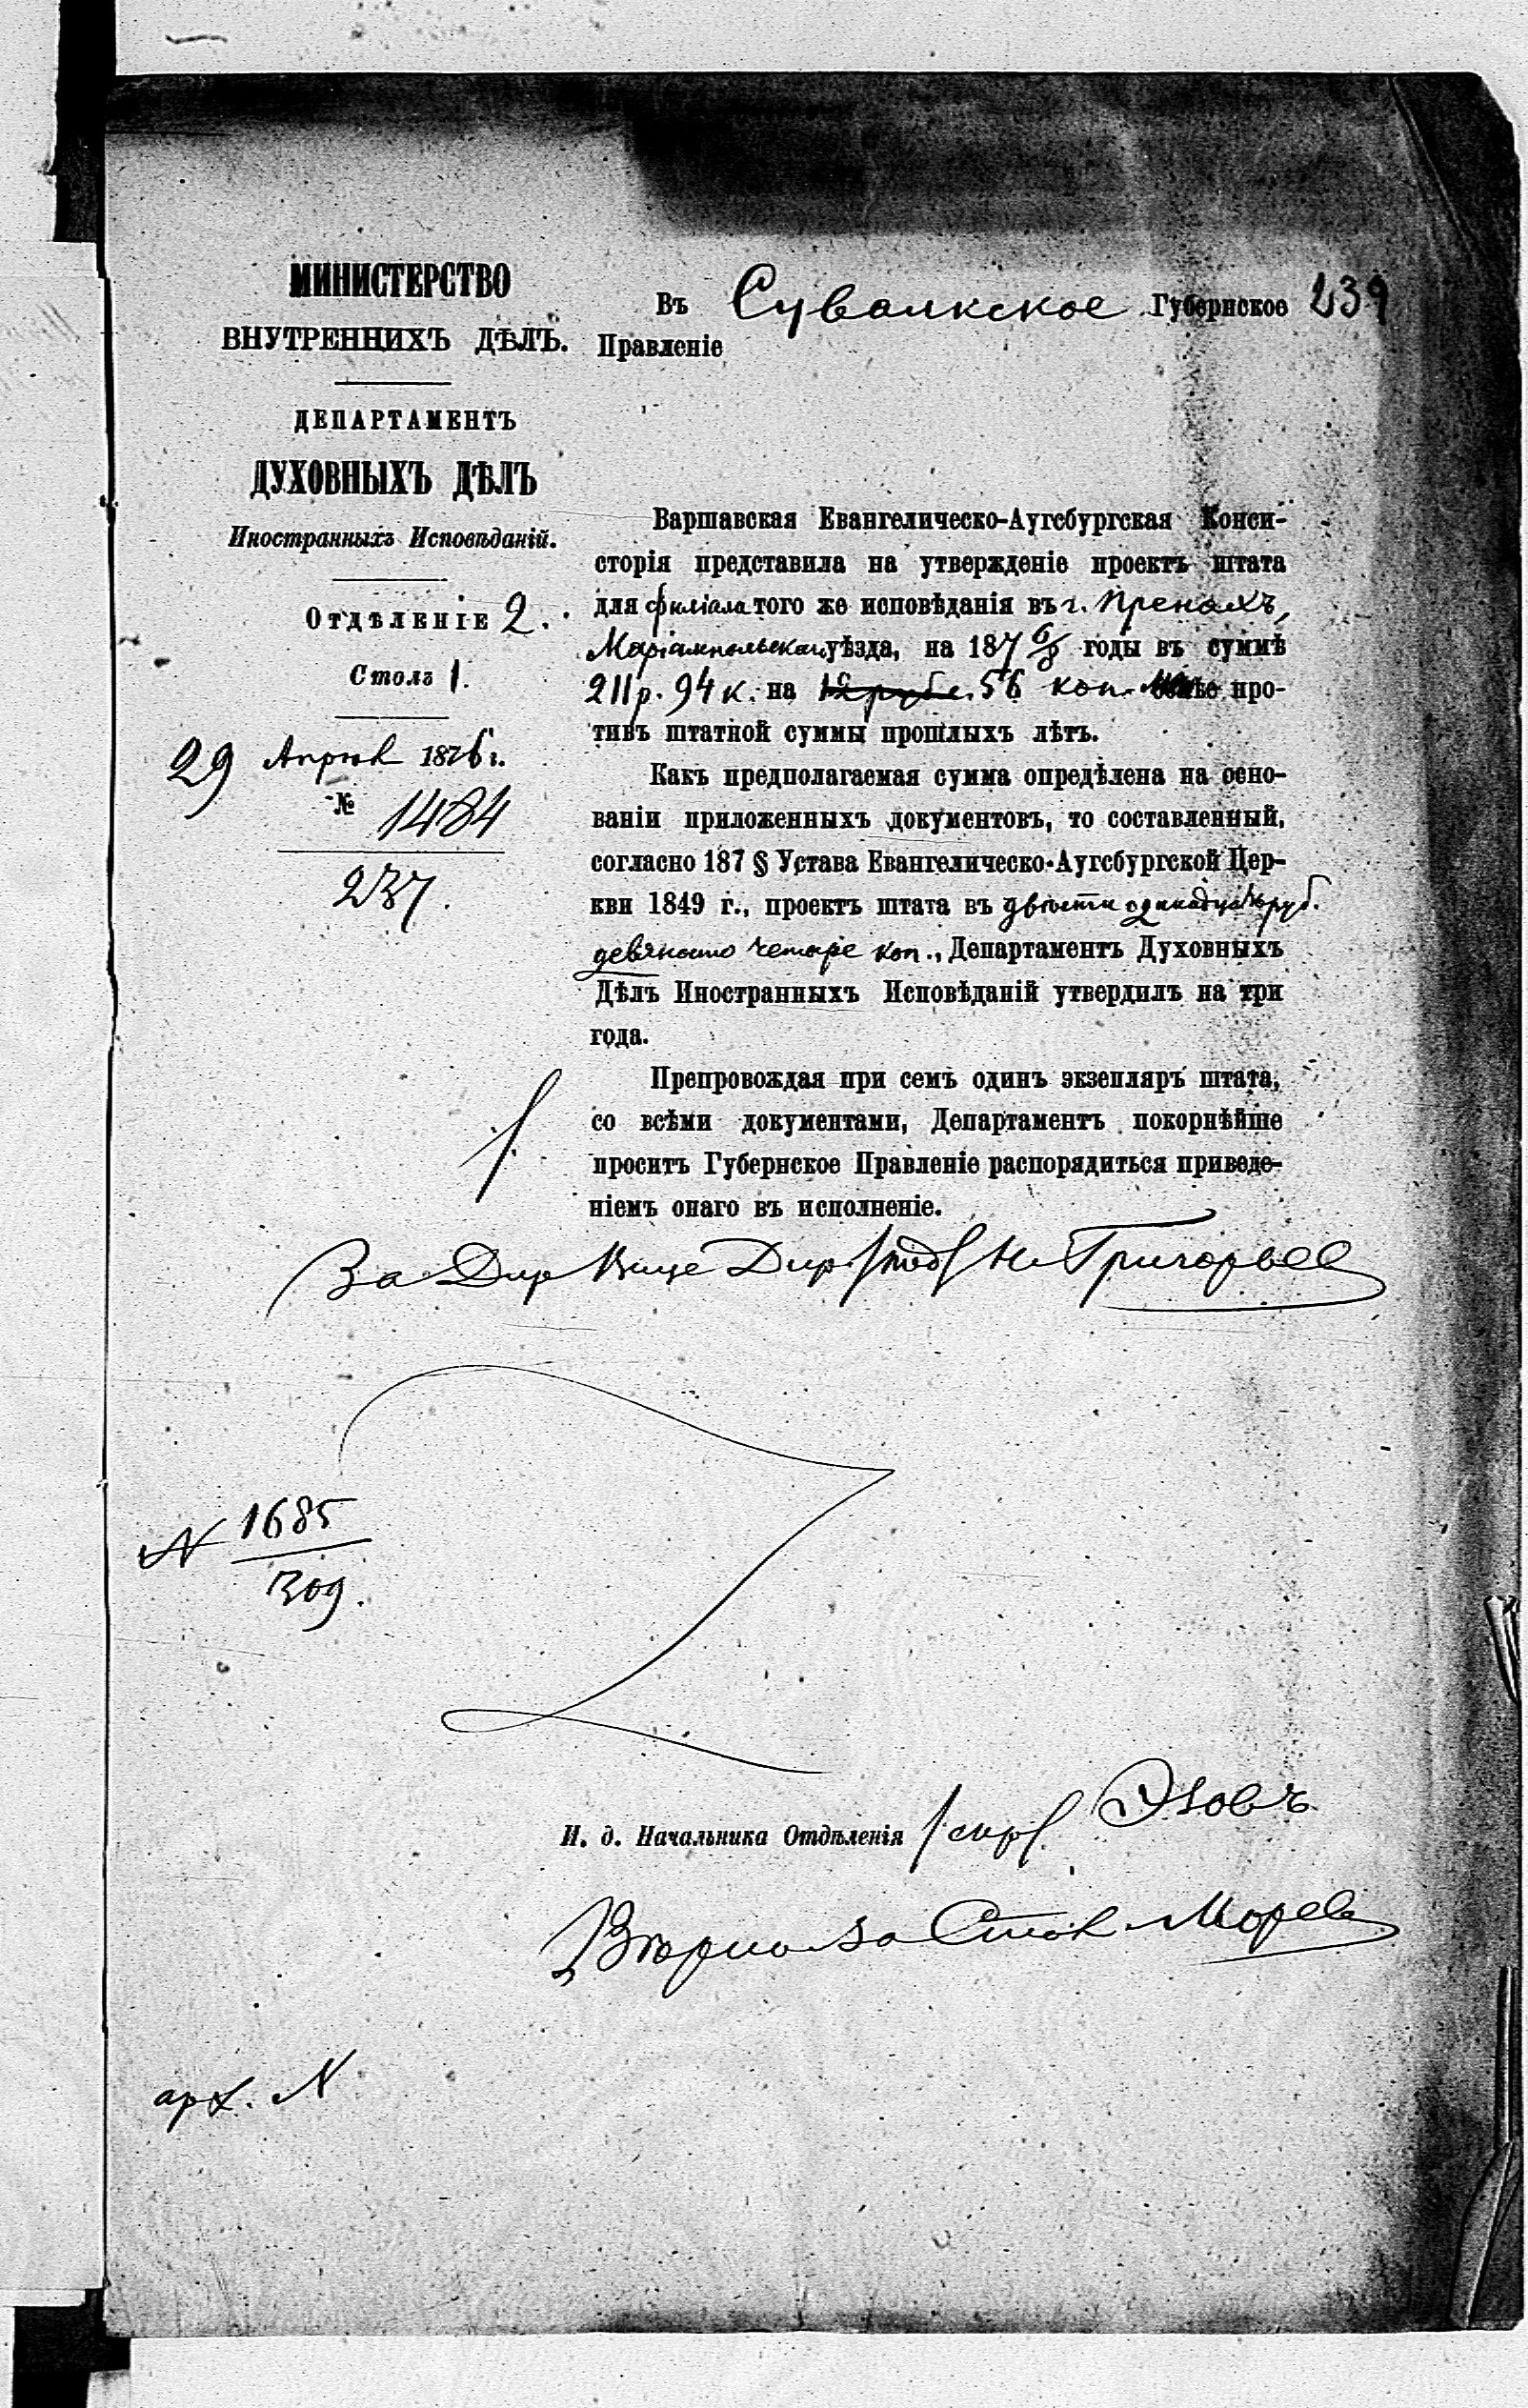 МИНИСТЕРСТВО
ВНУТРЕННИХЪ ДѢЛЪ.
ДЕПАРТАМЕНТЪ
ДУХОВНЫХЪ ДѢЛЪ
Иностранныхъ Исповѣданій.
Отдѣленіе 2.
Столъ 1.
29 Апрѣля 1876 г.
№ 1484
237.
Въ Сувалкское Губернское 239
Правленіе
Варшавская Евангелическо-Аугсбургская Конси-
сторія представила на утвержденіе проектъ штата
для филіала того же исповѣданія въ г. Пренахъ,
Маріампольскаго уѣзда, на 187 6/8 годы въ суммѣ
211 р. 94 к. на 12 рубл. 56 коп. про-
тивъ штатной суммы прошлыхъ лѣтъ.
Какъ предполагаемая сумма опредѣлена на осно-
ваніи приложенныхъ документовъ, то составленный,
согласно 187 § Устава Евангелическо-Аугсбургской Цер-
кви 1849 г., проектъ штата въ двѣсти одинадцать руб.
девяносто четыре коп., Департаментъ Духовныхъ
Дѣлъ Иностранныхъ Исповѣданій утвердилъ на три
года.
Препровождая при семъ одинъ экзепляръ штата,
со всѣми документами, Департаментъ покорнѣйше
проситъ Губернское Правленіе распорядиться приведе-
ніемъ онаго въ исполненіе.
За Дир Вице Дир. /под/ Н. Григорьев
N 1685
309.
И. д. Начальника Отдѣленія /скр/ Эзовъ
Вѣрно за Стол Морев
арх. N